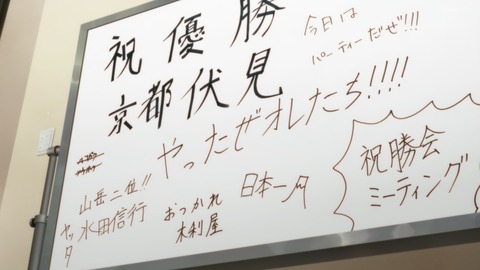 祝優勝
京都伏見
今日は
パーティーだぜ!!!
やったぜオレたち!!!!
祝勝会
ミーティング
日本一
おつかれ
木利屋
山岳二位!!
水田信行
ヤッタ